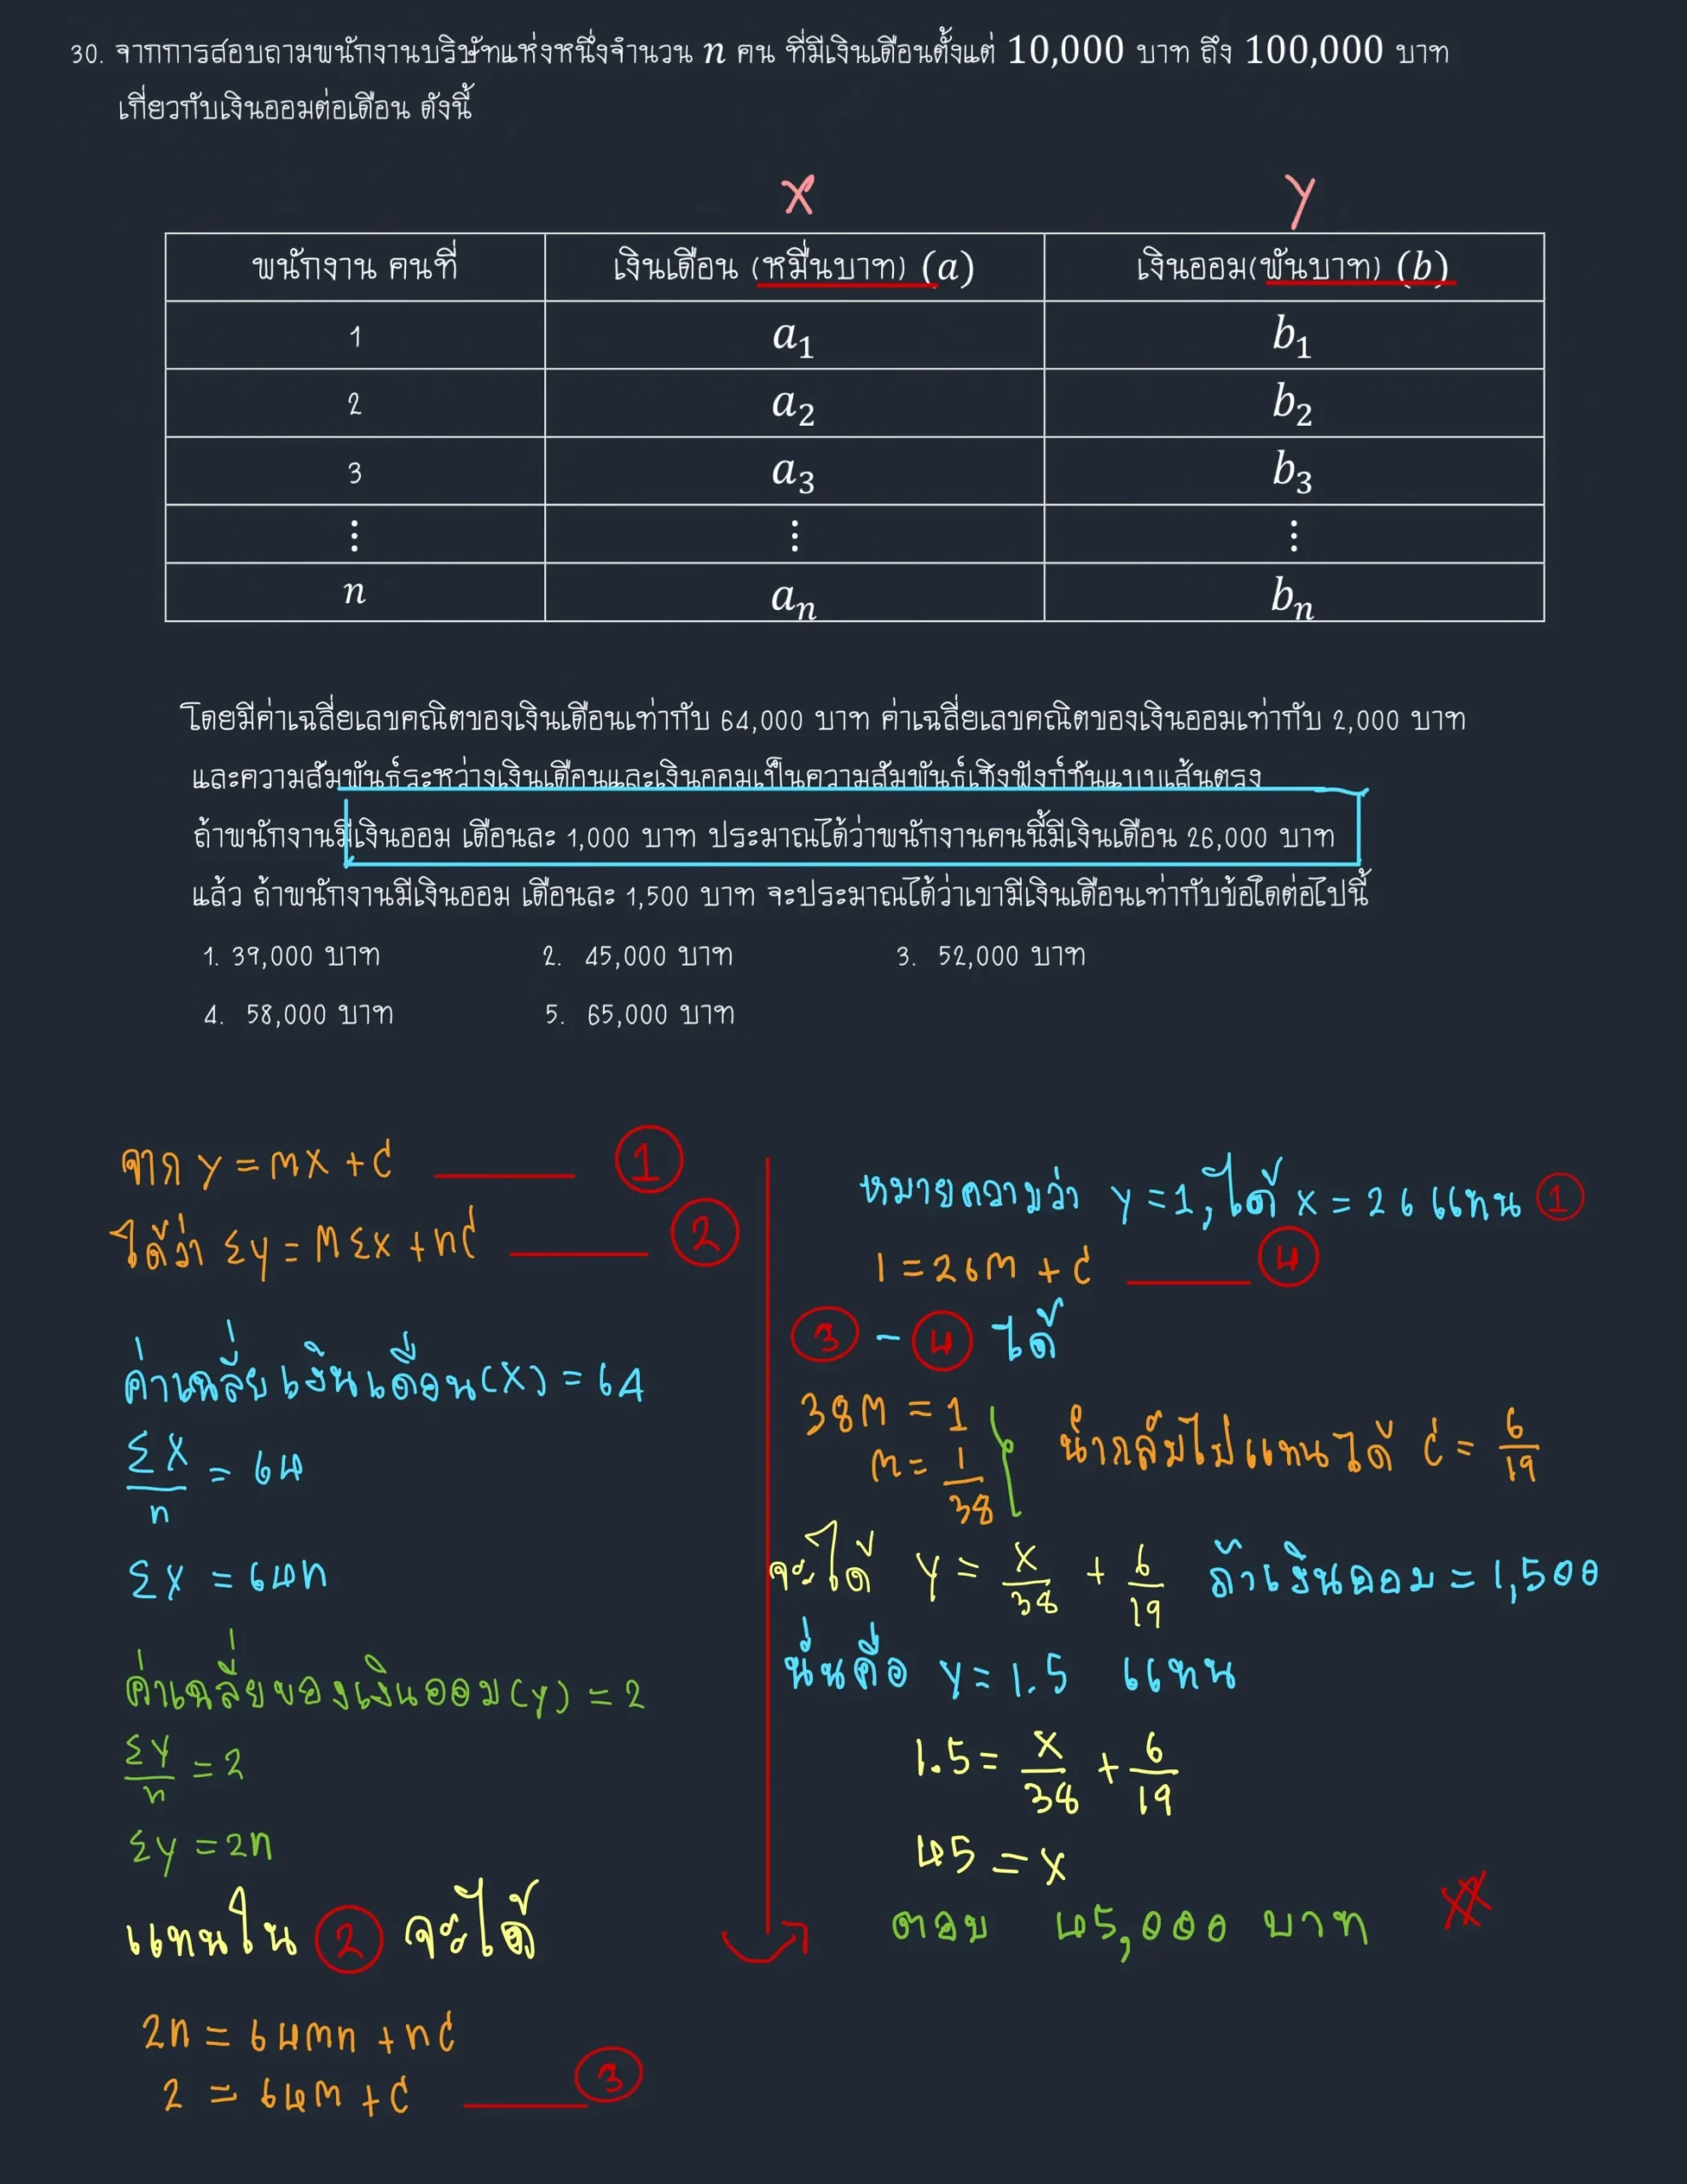 30. จากการสอบถามพนักงานบริษัทแห่งหนึ่งจำนวน n คน ที่มีเงินเดือนตั้งแต่ 10,000 บาท ถึง 100,000 บาท
เกี่ยวกับเงินออมต่อเดือน ดังนี้
x y
พนักงาน คนที่ เงินเดือน (หมื่นบาท) (a) เงินออม(พันบาท) (b)
1 a₁ b₁
2 a₂ b₂
3 a₃ b₃
⋮ ⋮ ⋮
n aₙ bₙ
โดยมีค่าเฉลี่ยเลขคณิตของเงินเดือนเท่ากับ 64,000 บาท ค่าเฉลี่ยเลขคณิตของเงินออมเท่ากับ 2,000 บาท
และความสัมพันธ์ระหว่างเงินเดือนและเงินออมเป็นความสัมพันธ์เชิงฟังก์ชันแบบเส้นตรง
ถ้าพนักงานมีเงินออม เดือนละ 1,000 บาท ประมาณได้ว่าพนักงานคนนี้มีเงินเดือน 26,000 บาท
แล้ว ถ้าพนักงานมีเงินออม เดือนละ 1,500 บาท จะประมาณได้ว่าเขามีเงินเดือนเท่ากับข้อใดต่อไปนี้
1. 39,000 บาท 2. 45,000 บาท 3. 52,000 บาท
4. 58,000 บาท 5. 65,000 บาท
จาก y = mx + c ①
ได้ว่า Σy = mΣx + nc ②
ค่าเฉลี่ยเงินเดือน(x) = 64
Σx/n = 64
Σx = 64n
ค่าเฉลี่ยของเงินออม(y) = 2
Σy/n = 2
Σy = 2n
แทนใน ② จะได้
2n = 64mn + nc
2 = 64m + c ③
หมายความว่า y = 1, ได้ x = 26 แทน ①
1 = 26m + c ④
③ - ④ ได้
38m = 1
m = 1/38 นำกลับไปแทนได้ c = 6/19
จะได้ y = x/38 + 6/19 ถ้าเงินออม = 1,500
นั่นคือ y = 1.5 แทน
1.5 = x/38 + 6/19
45 = x
ตอบ 45,000 บาท